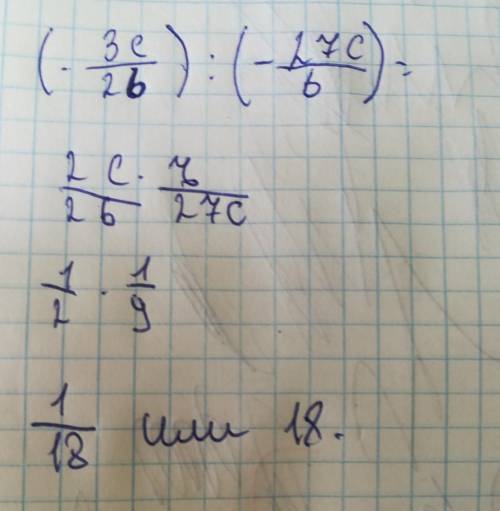 (- 3c/2b) : (- 27c/b) =
2c/2b · b/27c
1/2 · 1/9
1/18 или 18.